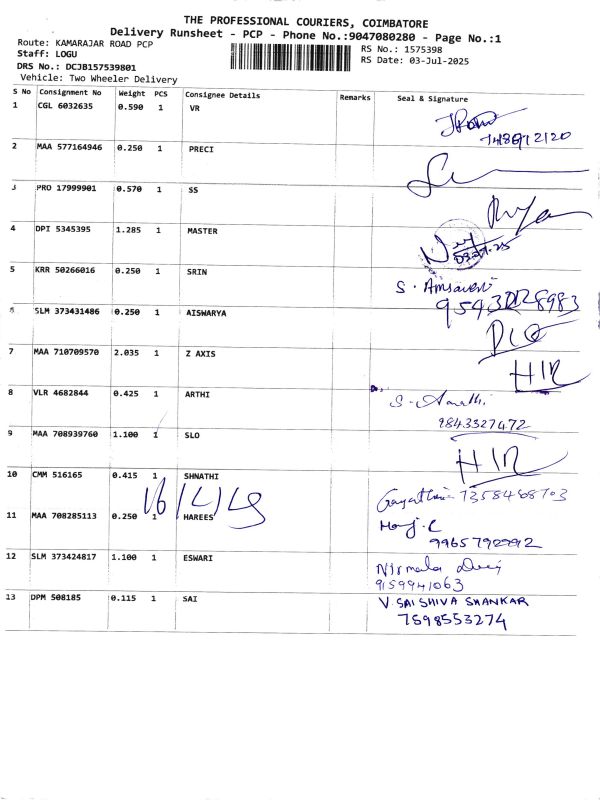 THE PROFESSIONAL COURIERS, COIMBATORE
Delivery Runsheet - PCP - Phone No.:9047080280 - Page No.:1
Route: KAMARAJAR ROAD PCP
Staff: LOGU
DRS No.: DCJB157539801
Vehicle: Two Wheeler Delivery
RS No.: 1575398
RS Date: 03-Jul-2025
S No Consignment No Weight PCS Consignee Details Remarks Seal & Signature
1 CGL 6032635 0.590 1 VR
2 MAA 577164946 0.250 1 PRECI
3 PRO 17999901 0.570 1 SS
4 DPI 5345395 1.285 1 MASTER
5 KRR 50266016 0.250 1 SRIN
S. Amsaveni
6 SLM 373431486 0.250 1 AISWARYA
7 MAA 710709570 2.035 1 Z AXIS
8 VLR 4682844 0.425 1 ARTHI
9843327472
9 MAA 708939760 1.100 1 SLO
10 CMM 516165 0.415 1 SHNATHI
11 MAA 708285113 0.250 1 HAREES
12 SLM 373424817 1.100 1 ESWARI
Nirmala Devi
9159941063
13 DPM 508185 0.115 1 SAI V. SAI SHIVA SHANKAR
7598553274